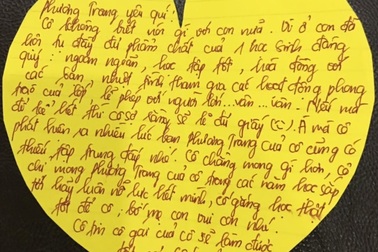 Phương Trang yêu quí!
Cô không biết nói gì với con nữa. Vì ở con đã
hôn tụ đầy đủ phẩm chất của 1 học sinh đáng
quý: ngoan ngoãn, học tập tốt, hoà đồng với
các bạn, nhiệt tình tham gia các hoạt động phong
trào của lớp, lễ phép với người lớn... vân... vân. Nếu mà
để kể hết thì cô sợ rằng sẽ k đủ giấy (:). À mà cô
phát hiện ra nhiều lúc bạn Phương Trang của cô cũng có
thiếu tập trung đấy nhé. Cô chẳng mong gì hơn, cô
chỉ mong Phương Trang của cô trong các năm học sắp
tới hãy luôn nỗ lực hết mình, cố gắng học thật
tốt để cô, bố mẹ con vui con nhé.
Cô tin cô gái của cô sẽ làm được